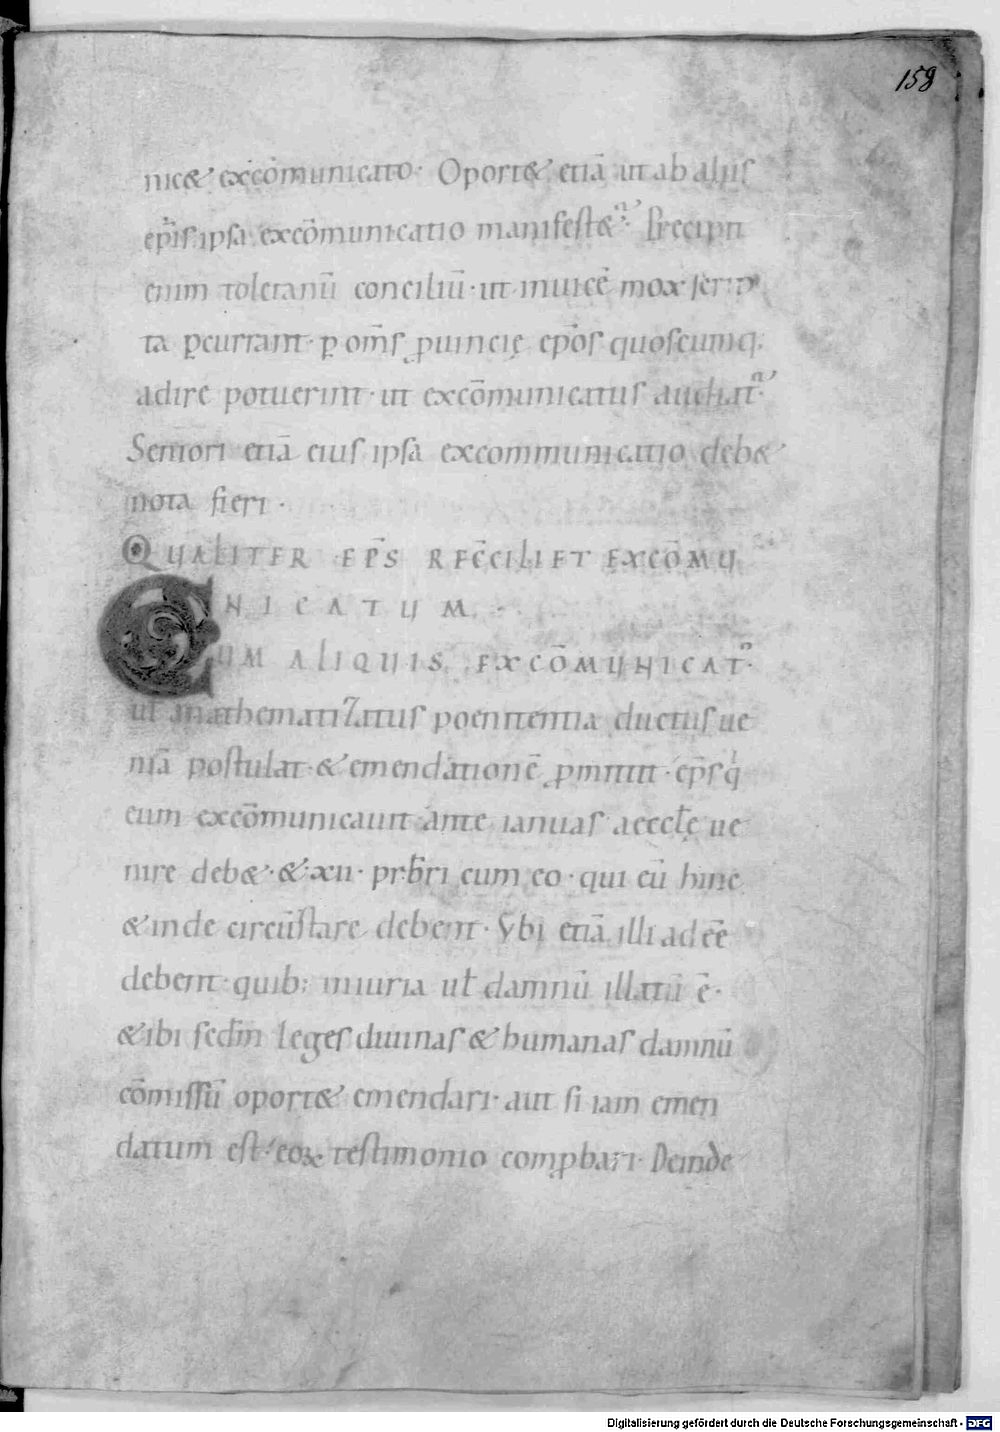 158
nic& excōmunicato· Oport& etiā ut ab aliis
ep̄is ipsa excōmunicatio manifest&ᵘʳ· Precipit
enim toletanū conciliū· ut inuicē mox scrip
ta ꝑcurrant· ꝑ om̄s ꝓuincię ep̄os quoscumq;
adire potuerint· ut excōmunicatus audiatᵘʳ·
Seniori etiā eius ipsa excommunicatio deb&
nota fieri·
QUALITER EP̄S REC̄CILIET EXCŌMU
NICATUM·
CUM ALIQUIS EXCŌMUNICATᵘˢ·
ul̄ anathematizatus poenitentia ductus ue
niā postulat· & emendationē ꝓmittit· ep̄s qⁱ
eum excōmunicauit ante ianuas aeccl̄ę ue
nire deb&· & xii· prb̄ri cum eo· qui eū hinc
& inde circūstare debent· Vbi etiā illi adeē
debent quib; iniuria ul̄ damnū illatū ē·
& ibi secd̄m leges diuinas & humanas damnū
cōmissū oport& emendari· aut si iam emen
datum est· eoꝝ testimonio comꝓbari· Deinde
Digitalisierung gefördert durch die Deutsche Forschungsgemeinschaft - DFG